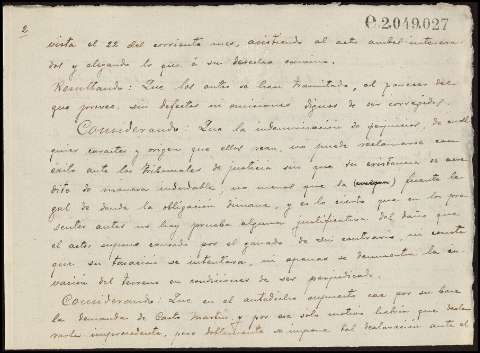 2
C.2.049.027
vista el 22 del corriente mes, asistiendo al acto ambos interesa-
dos y alegando lo que á su derecho convino.
Resultando: Que los autos se han tramitado, al parecer del
que provee, sin defectos ni omisiones dignos de ser corregidos.
Considerando: Que la indemnización de perjuicios, de cual-
quier caracter y origen que ellos sean, no puede reclamarse con
éxito ante los tribunales de justicia sin que su existencia se acre-
dite de manera indudable, no menos que la fuente le-
gal de donde la obligación dimane, y es lo cierto que en los pre-
sentes autos no hay prueba alguna justificativa del daño que
el actor supone causado por el ganado de su contrario, ni consta
que su tasación se intentara, ni apenas se demuestra la in-
vasión del terreno en condiciones de ser perjudicado.
Considerando: Que en el antedicho supuesto cae por su base
la demanda de Martín y por ese solo motivo habría que decla-
rarla improcedente, pero doblemente se impone tal declaración ante el